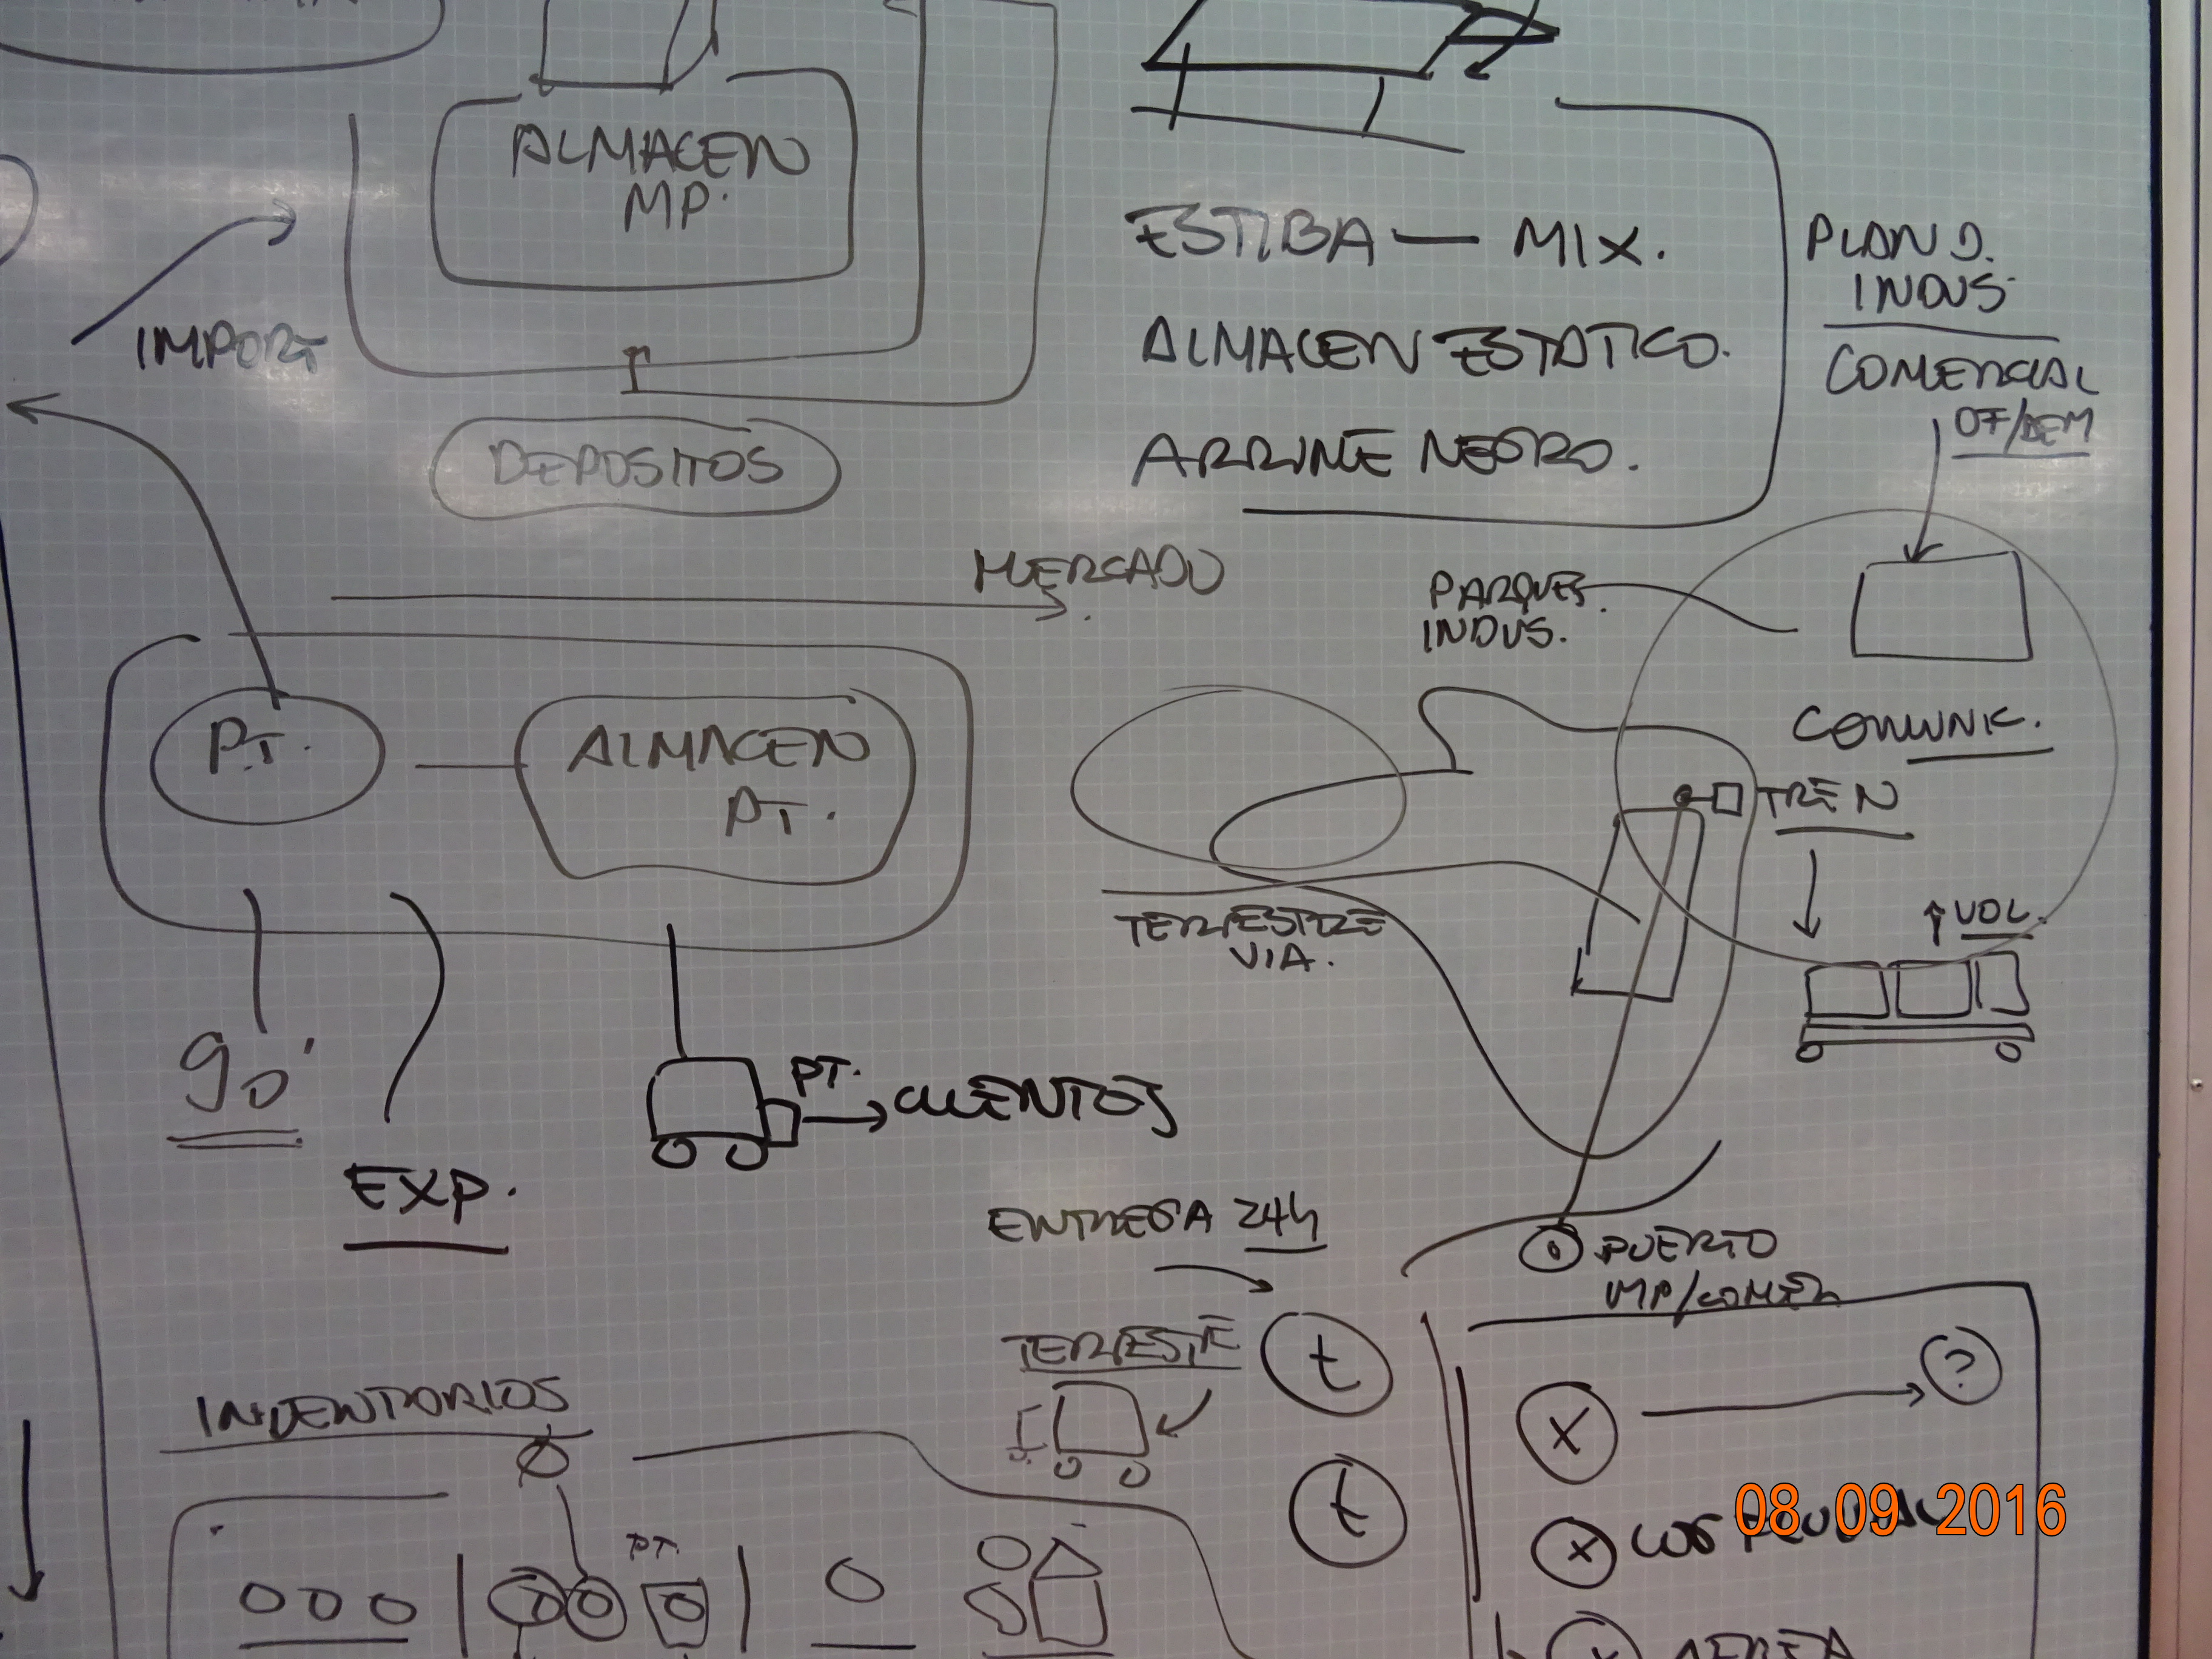 ALMACEN
MP.
IMPORT
DEPOSITOS
ESTIBA — MIX.
ALMACEN ESTATICO.
ARRUME NEGRO.
PLAN D.
INDUS.
COMERCIAL
OF/DEM
MERCADO
PARQUES.
INDUS.
PT.
ALMACEN
PT.
COMUNIC.
TREN
↑ VOL.
TERRESTRE
VIA.
90'
EXP.
PT.
CLIENTES
ENTREGA 24h
PUERTO
IMP/COMER
TERRESTE
t
t
X
?
X
INVENTARIOS
PT.
08 09 2016
AEREA